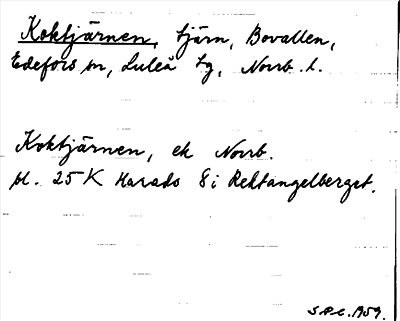 Koktjärnen, tjärn, Bovallen,
Edefors sn, Luleå tg, Norrb. l.
Koktjärnen, ek Norrb.
bl. 25 K Harads 8 i Rektangelberget.
1959.